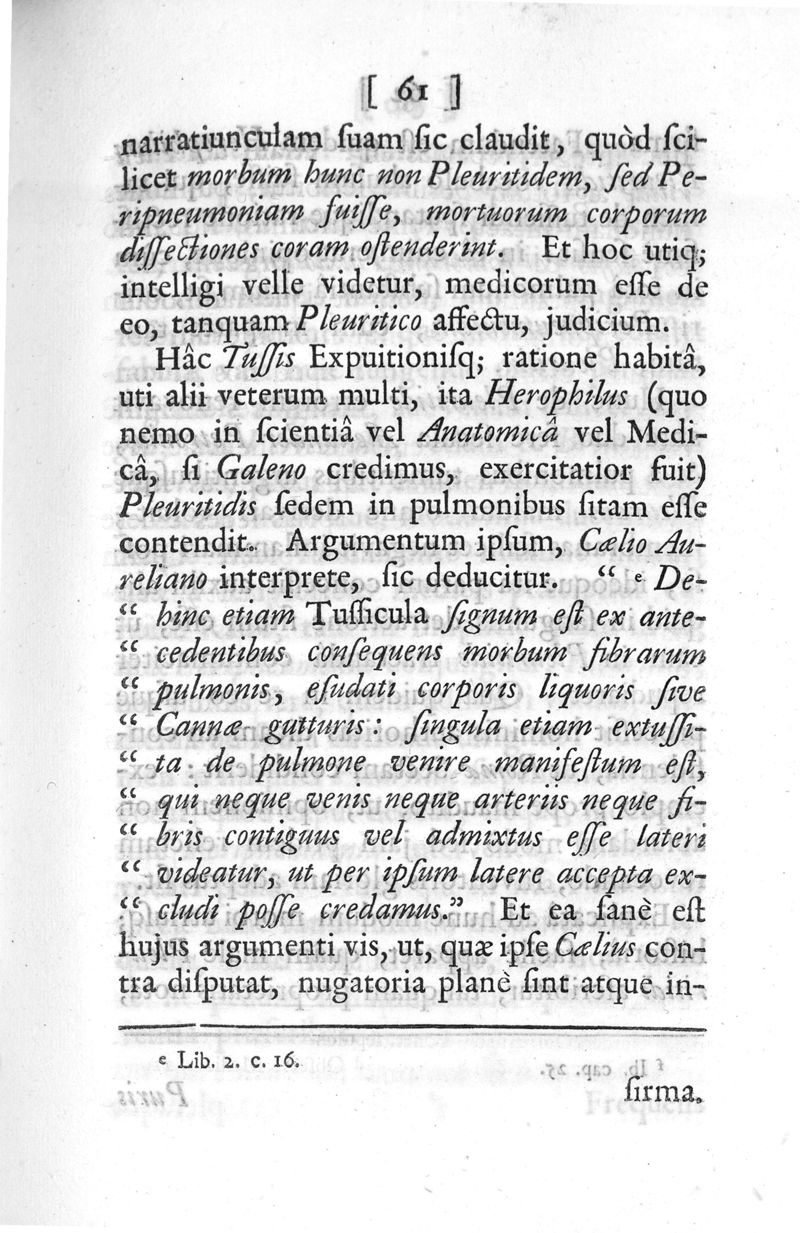 [ 61 ]
narratiunculam ſuam ſic claudit, quòd ſci-
licet morbum hunc non Pleuritidem, ſed Pe-
ripneumoniam fuiſſe, mortuorum corporum
diſſectiones coram oſtenderint. Et hoc utiq;
intelligi velle videtur, medicorum eſſe de
eo, tanquam Pleuritico affectu, judicium.
Hâc Tuſſis Expuitioniſq; ratione habitâ,
uti alii veterum multi, ita Herophilus (quo
nemo in ſcientiâ vel Anatomicâ vel Medi-
câ, ſi Galeno credimus, exercitatior fuit)
Pleuritidis ſedem in pulmonibus ſitam eſſe
contendit. Argumentum ipſum, Cælio Au-
reliano interprete, ſic deducitur. “ e De-
“ hinc etiam Tuſſicula ſignum eſt ex ante-
“ cedentibus conſequens morbum fibrarum
“ pulmonis, eſudati corporis liquoris ſive
“ Cannæ gutturis : ſingula etiam extuſſi-
“ ta de pulmone venire manifeſtum eſt,
“ qui neque venis neque arteriis neque fi-
“ bris contiguus vel admixtus eſſe lateri
“ videatur, ut per ipſum latere accepta ex-
“ cludi poſſe credamus.” Et ea ſanè eſt
hujus argumenti vis, ut, quæ ipſe Cælius con-
tra diſputat, nugatoria planè ſint atque in-
e Lib. 2. c. 16.
firma.